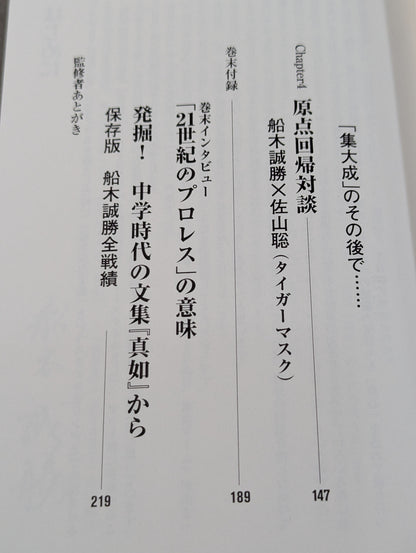 「集大成」のその後で……
Chapter4 原点回帰対談 147
船木誠勝×佐山聡(タイガーマスク)
巻末付録 189
巻末インタビュー
「21世紀のプロレス」の意味
発掘! 中学時代の文集『真如』から
保存版 船木誠勝全戦績
監修者あとがき 219